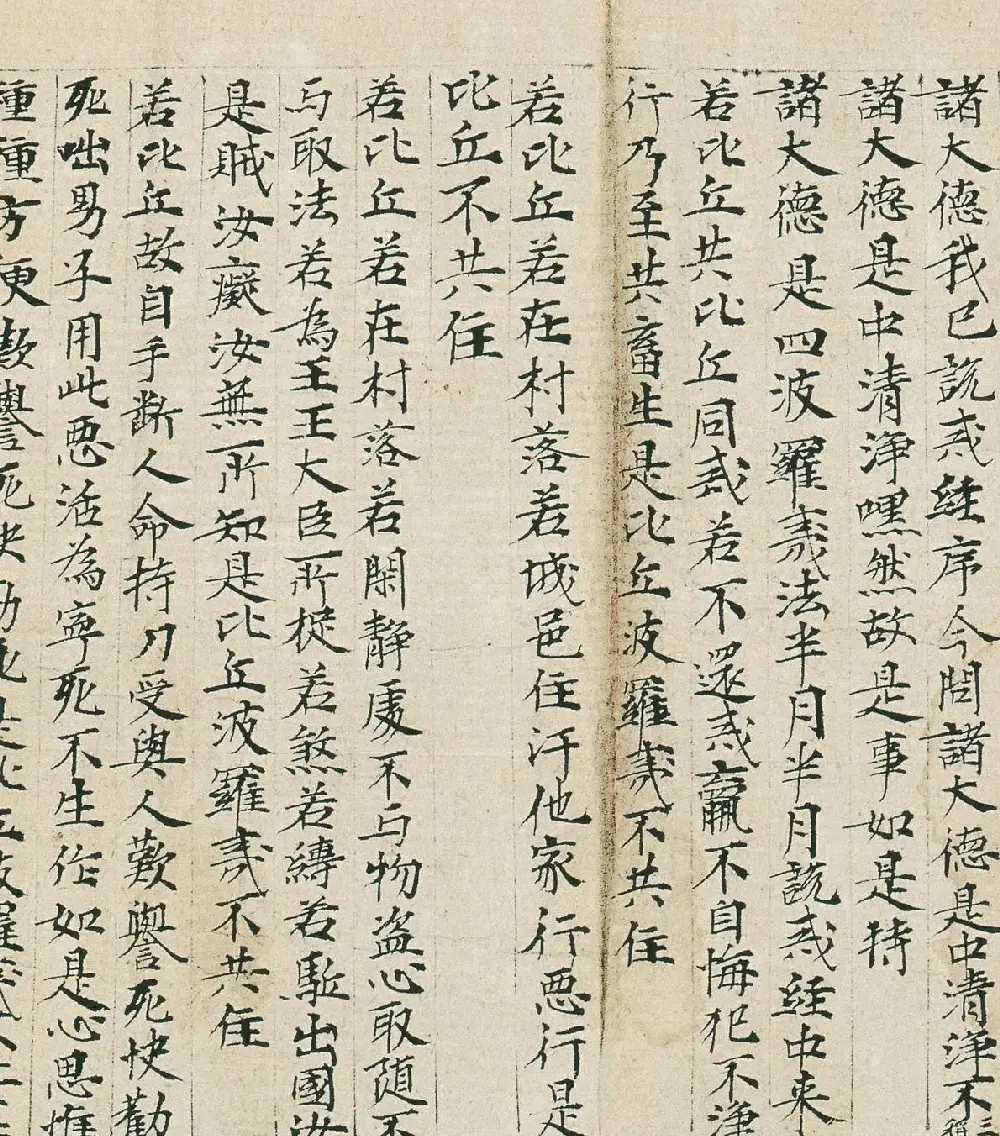 諸大德我已說戒経序今問諸大德是中清淨不三
諸大德是中清淨嘿然故是事如是持
諸大德是四波羅夷法半月半月說戒経中来
若比丘共比丘同戒若不還戒羸不自悔犯不淨
行乃至共畜生是比丘波羅夷不共住
若比丘若在村落若城邑住汙他家行惡行是
比丘不共住
若比丘若在村落若閑静處不与物盗心取随不
与取法若為王王大臣所捉若煞若縛若駈出國汝
是賊汝癡汝無所知是比丘波羅夷不共住
若比丘故自手断人命持刀受與人歎譽死快勸
死咄男子用此惡活為寧死不生作如是心思惟
種種方便歎譽死快勸死是比丘波羅夷不